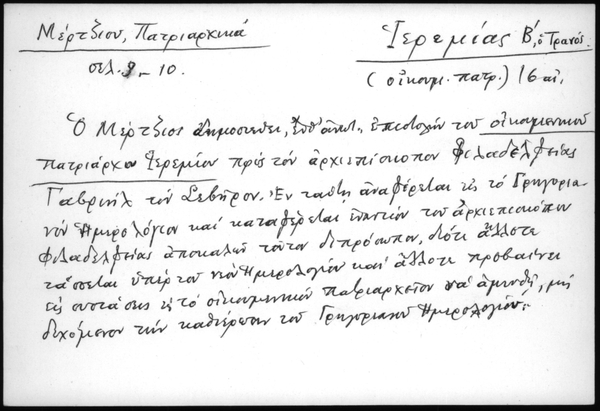 Μέρτζιου, Πατριαρχικά
σελ. 9-10.
Ἱερεμίας Β΄, ὁ Τρανός.
(οἰκουμ. πατρ.) 16 αἰ.
Ὁ Μέρτζιος δημοσιεύει, ἐπιστολὴν τοῦ οἰκουμενικοῦ
πατριάρχου Ἱερεμίου πρὸς τὸν ἀρχιεπίσκοπον Φιλαδελφείας
Γαβριὴλ τὸν Σεβῆρον. Ἐν ταύτῃ ἀναφέρεται εἰς τὸ Γρηγορια-
νὸν Ἡμερολόγιον καὶ καταφέρεται ἐναντίον τοῦ ἀρχιεπισκόπου
Φιλαδελφείας ἀποκαλῶν τοῦτον διπρόσωπον, διότι ἄλλοτε
τάσσεται ὑπὲρ τοῦ νέου Ἡμερολογίου καὶ ἄλλοτε προβαίνει
εἰς συστάσεις εἰς τὸ οἰκουμενικὸν πατριαρχεῖον νὰ ἀμυνθῇ, μὴ
δεχόμενον τὴν καθιέρωσιν τοῦ Γρηγοριανοῦ Ἡμερολογίου.